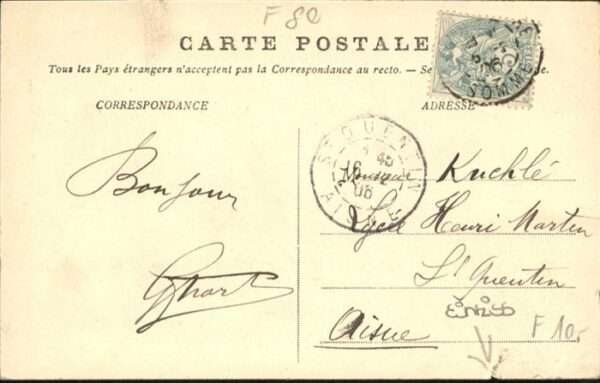 F 80
CARTE POSTALE
Tous les Pays étrangers n'acceptent pas la Correspondance au recto. — Se
CORRESPONDANCE
ADRESSE
SOMME
ST QUENTIN
AISNE
Bonjour
Monsieur Kuchlé
Lycée Henri Martin
St Quentin
Aisne
F 10.-